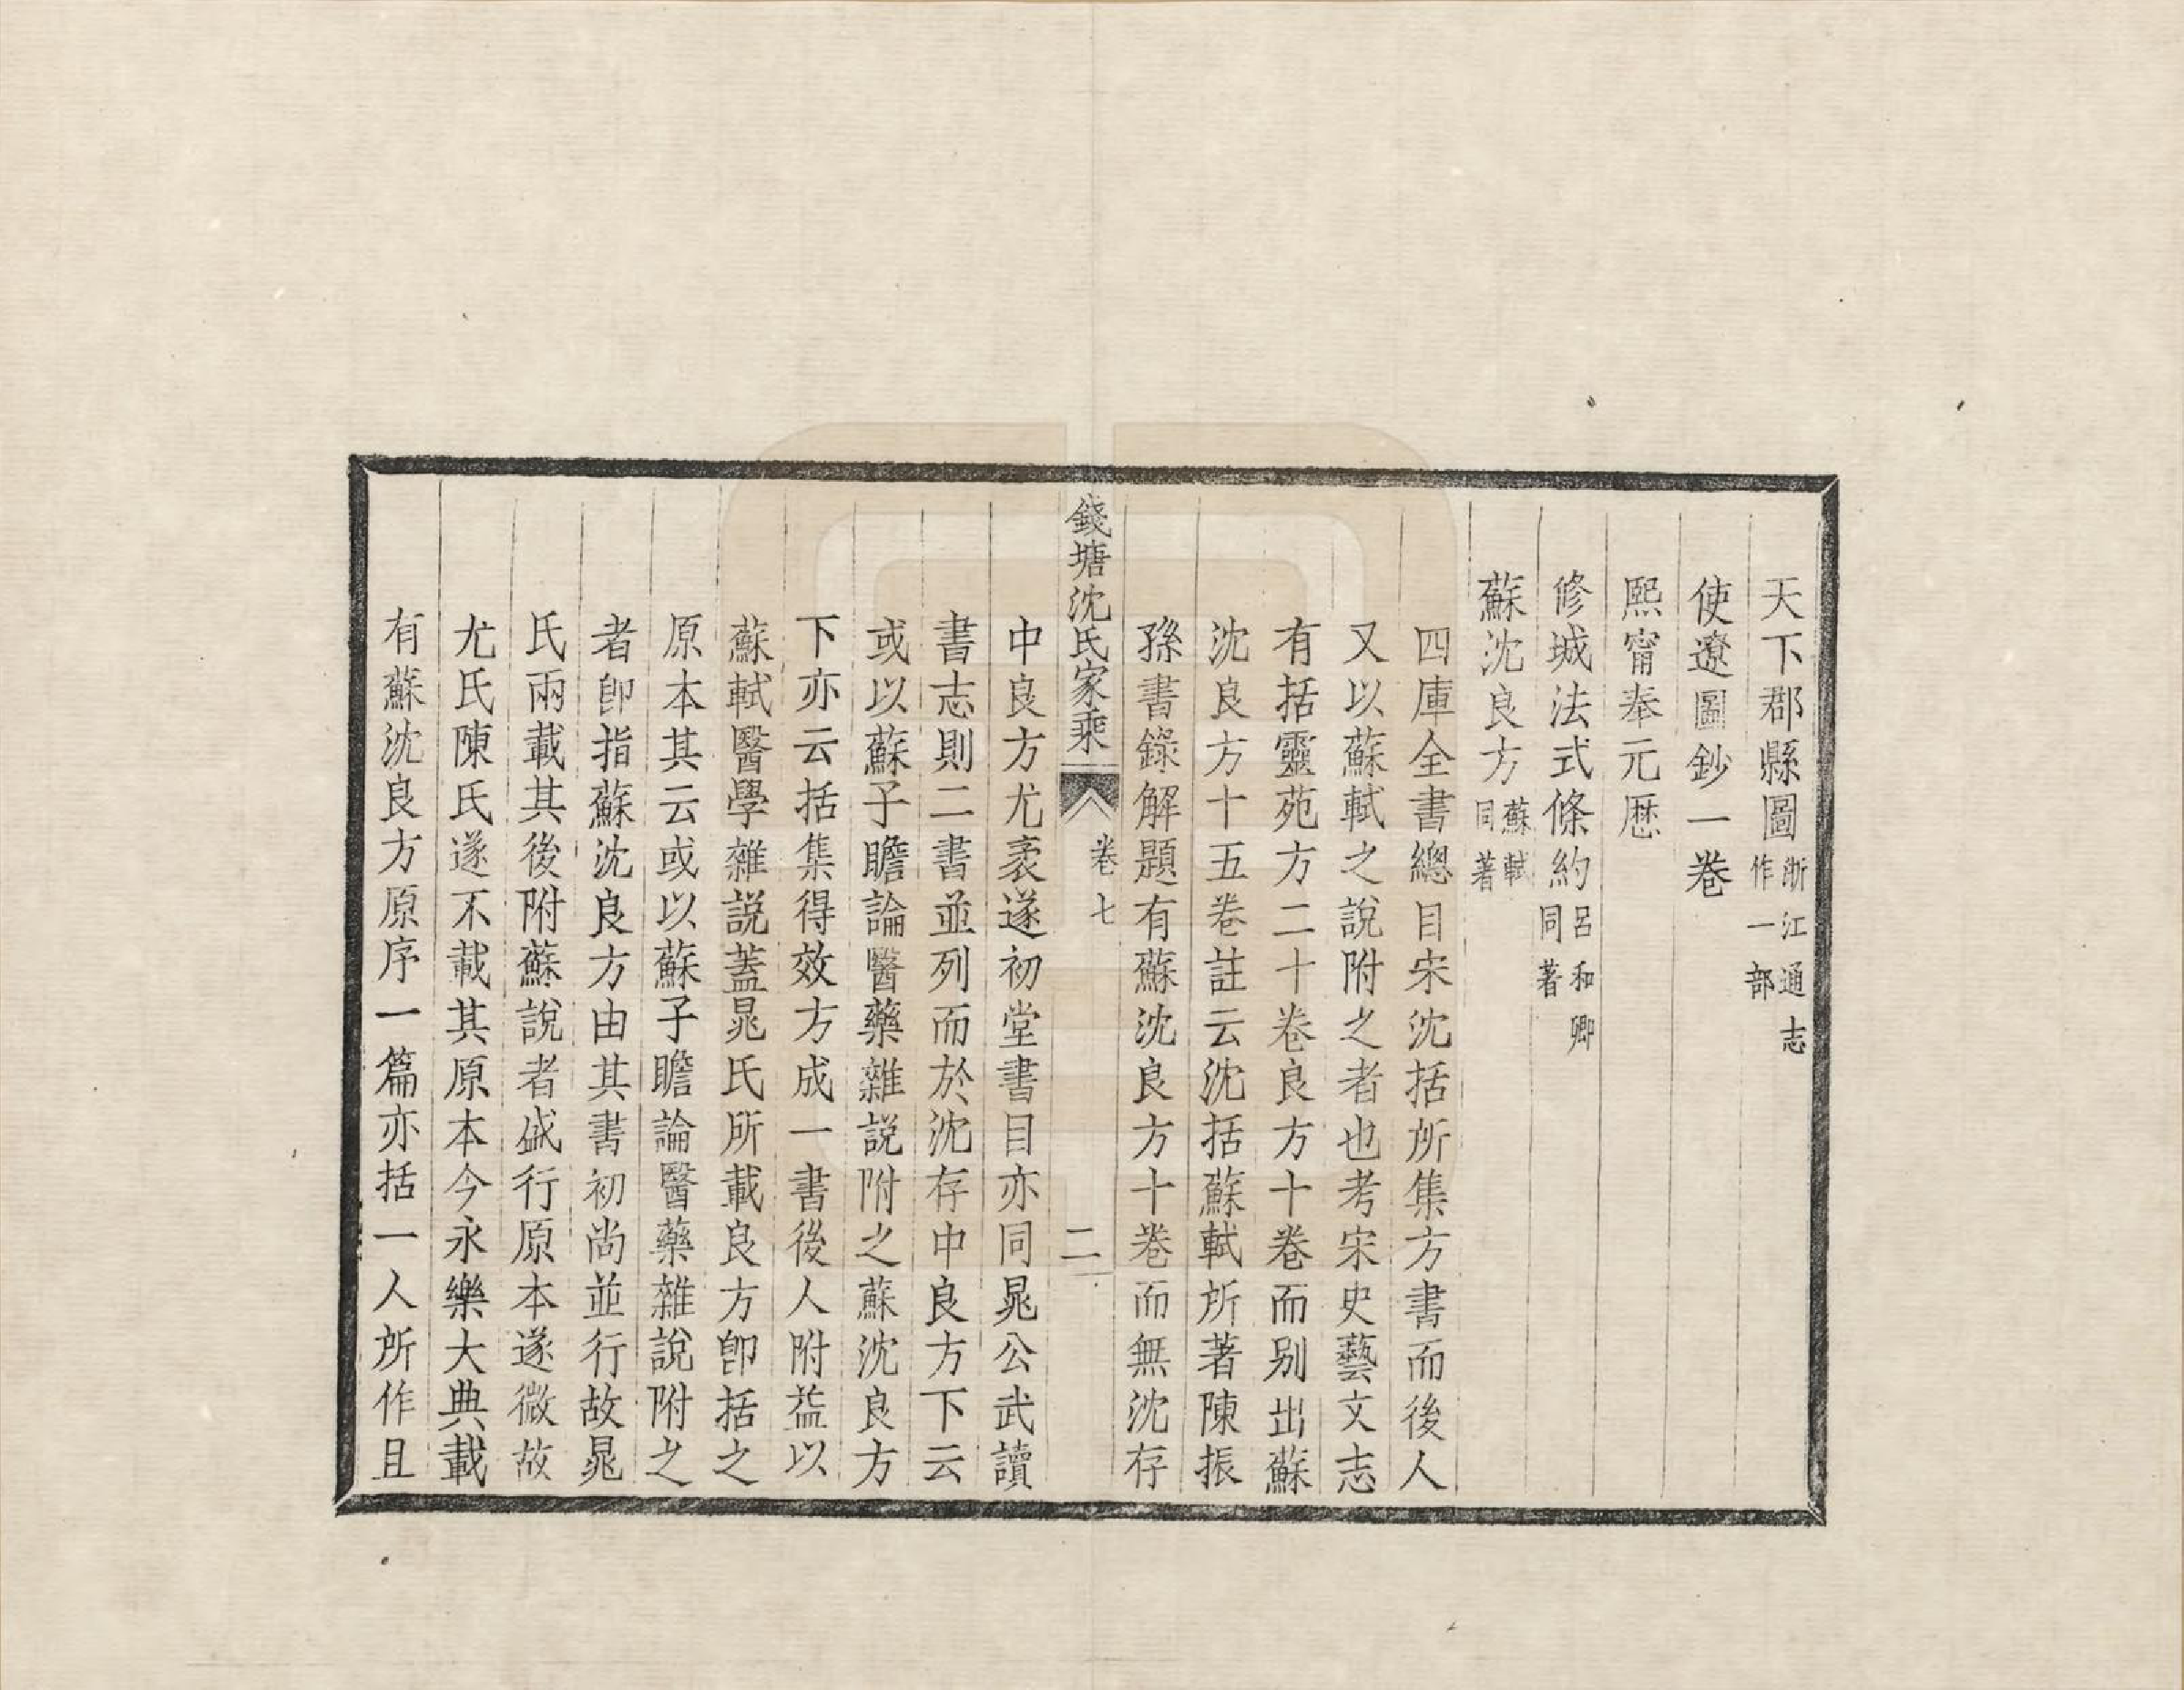 天下郡縣圖浙江通志作一部
使遼圖鈔一卷
熙甯奉元厯
修城法式條約呂和卿同著
蘇沈良方蘇軾同著
四庫全書總目宋沈括所集方書而後人
又以蘇軾之說附之者也考宋史藝文志
有括靈苑方二十卷良方十卷而别出蘇
沈良方十五卷註云沈括蘇軾所著陳振
孫書錄解題有蘇沈良方十卷而無沈存
錢塘沈氏家乘
卷七
二
中良方尤袤遂初堂書目亦同晁公武讀
書志則二書並列而於沈存中良方下云
或以蘇子瞻論醫藥雜說附之蘇沈良方
下亦云括集得效方成一書後人附益以
蘇軾醫學雜說蓋晁氏所載良方卽括之
原本其云或以蘇子瞻論醫藥雜說附之
者卽指蘇沈良方由其書初尚並行故晁
氏兩載其後附蘇說者盛行原本遂微故
尤氏陳氏遂不載其原本今永樂大典載
有蘇沈良方原序一篇亦括一人所作且